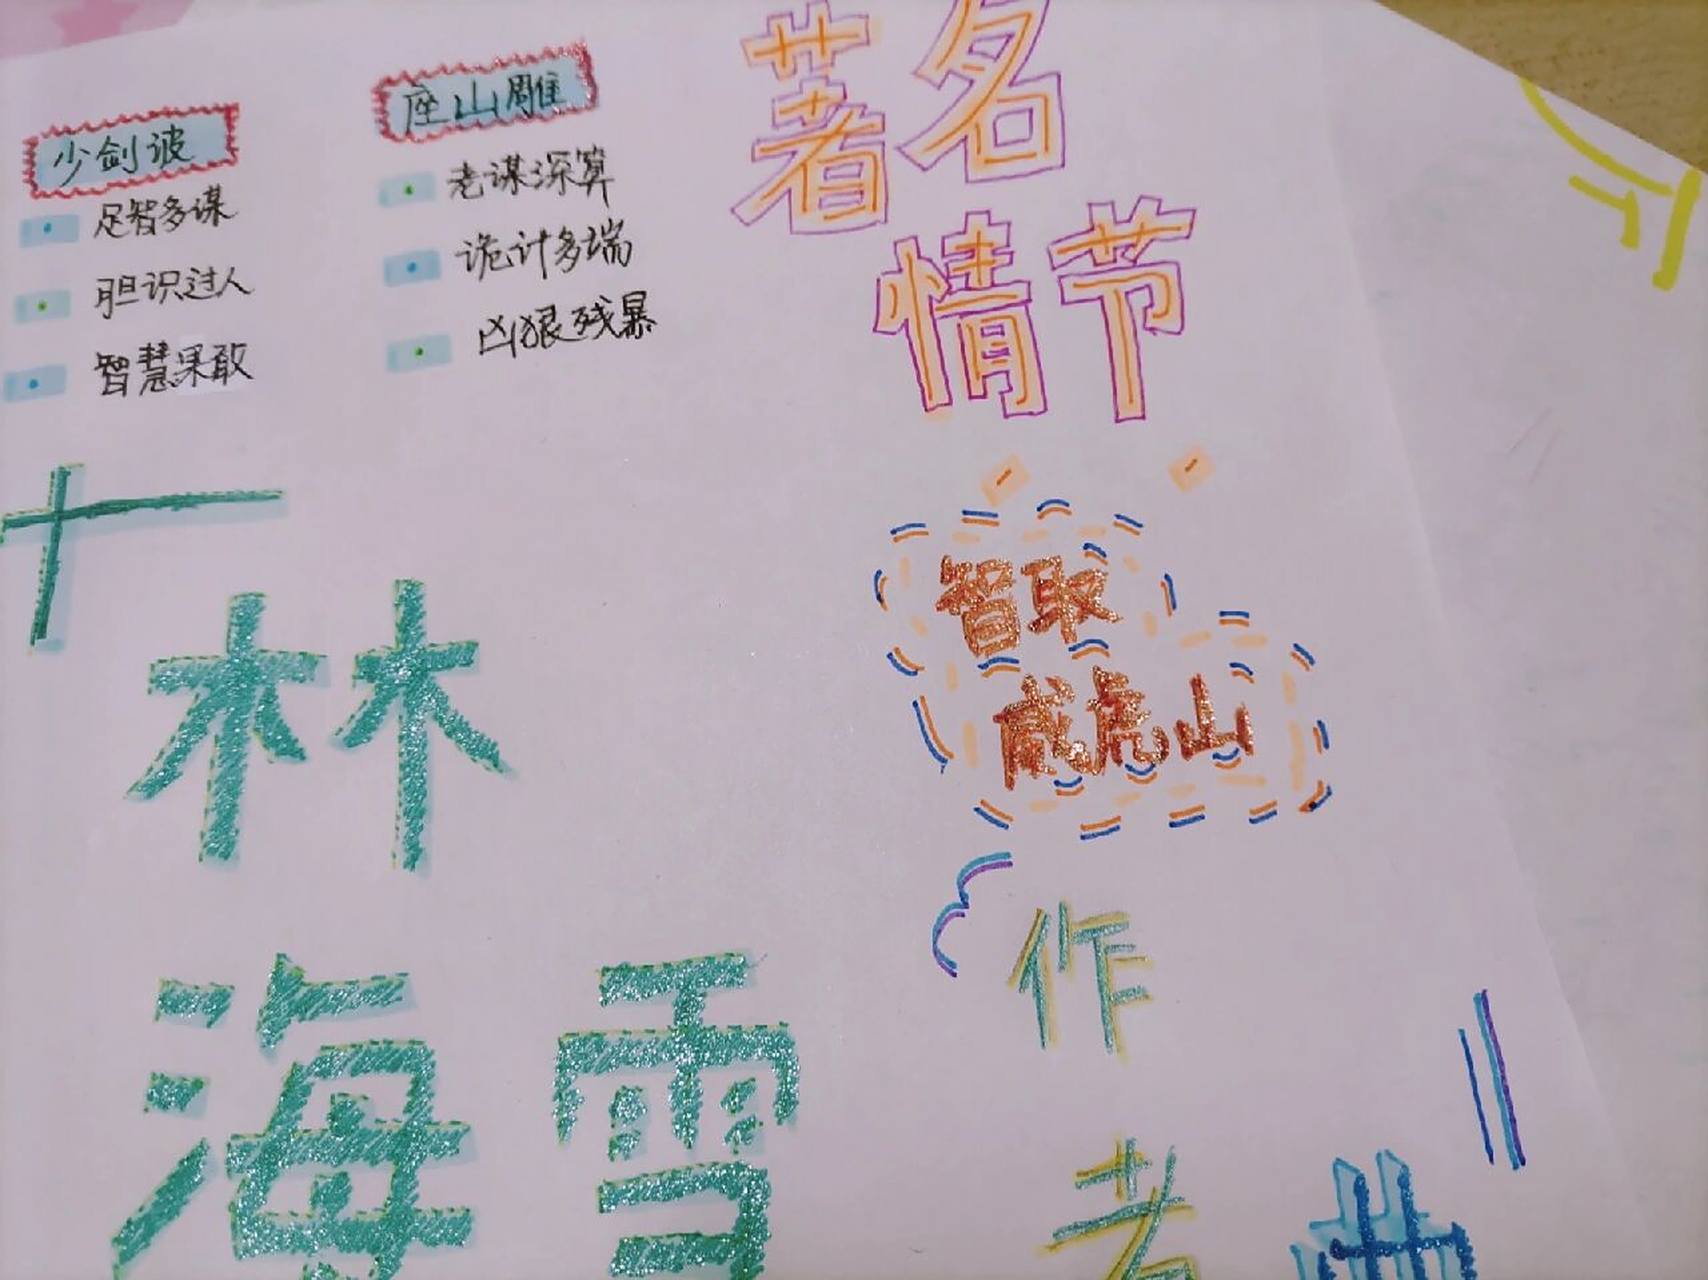 少剑波
足智多谋
胆识过人
智慧果敢
座山雕
老谋深算
诡计多端
凶狠残暴
著名
情节
林
海雪
智取
威虎山
作
者
曲